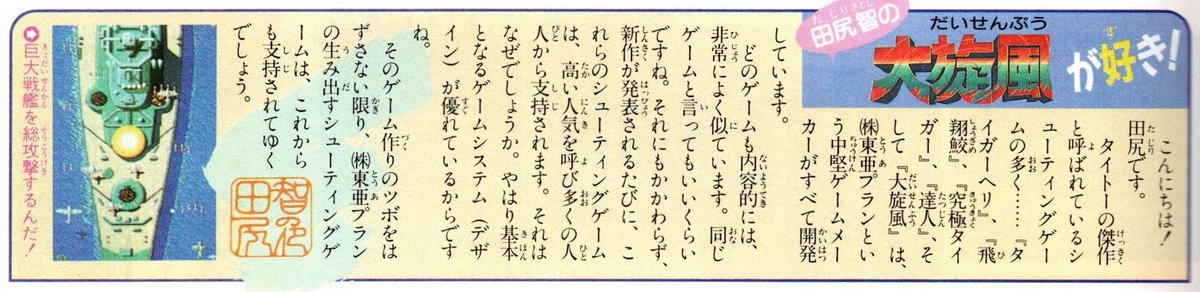 田尻智の
大旋風が好き!
こんにちは!
田尻です。
タイトーの傑作
と呼ばれているシ
ューティングゲー
ムの多く……『タ
イガーヘリ』、『飛
翔鮫』、『究極タイ
ガー』、『達人』、そ
して『大旋風』は、
㈱東亜プランとい
う中堅ゲームメー
カーがすべて開発
しています。
どのゲームも内容的には、
非常によく似ています。同じ
ゲームと言ってもいいくらい
ですね。それにもかかわらず、
新作が発表されるたびに、こ
れらのシューティングゲーム
は、高い人気を呼び多くの人
人から支持されます。それは
なぜでしょうか。やはり基本
となるゲームシステム(デザ
イン)が優れているからです
ね。
そのゲーム作りのツボをは
ずさない限り、㈱東亜プラン
の生み出すシューティングゲ
ームは、これから
も支持されてゆく
でしょう。
巨大戦艦を総攻撃するんだ!